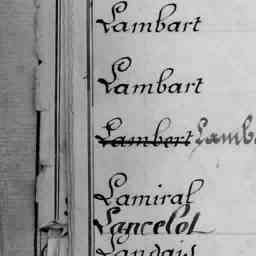 Lambart
Lambart
Lambert Lamb
Lamiral
Lancelot
Landais